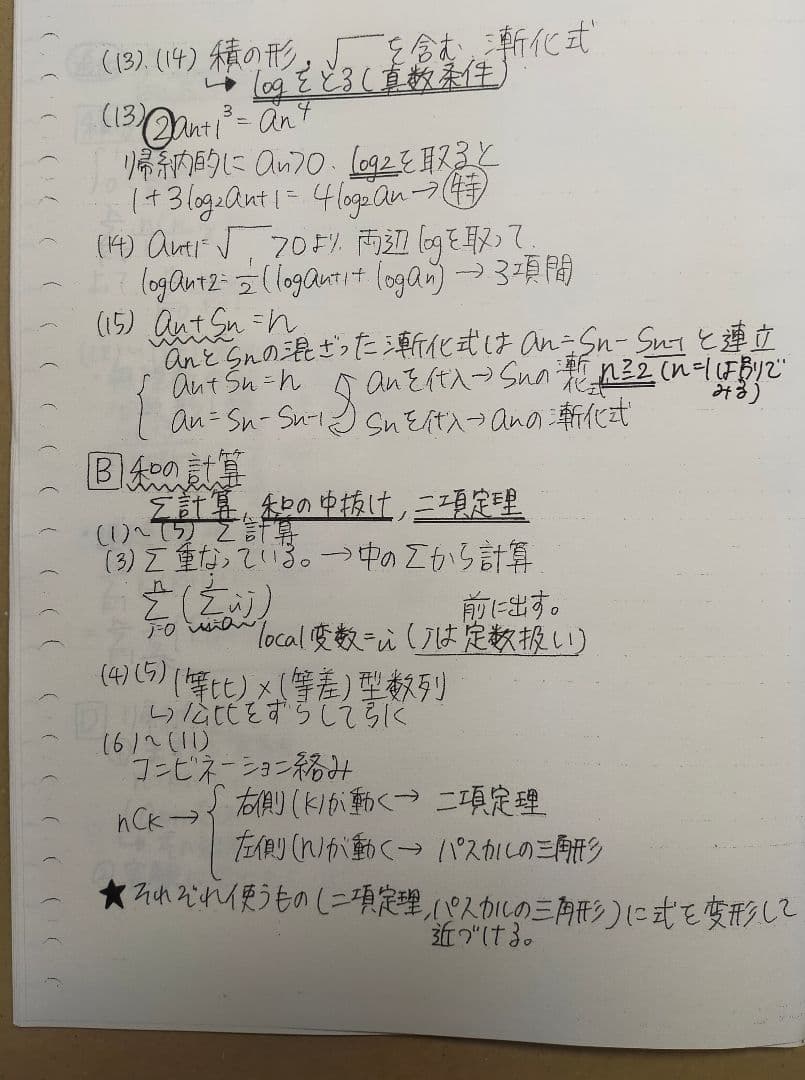 (13).(14) 積の形、√ を含む漸化式
↳ logをとる(真数条件)
(13) ②an+1³=an⁴
帰納的にan>0、log2を取ると
1+3log2an+1=4log2an→㊕
(14) an+1=√ >0より、両辺logを取って、
logan+2=1/2(logan+1+logan)→3項間
(15) an+Sn=n
anとSnの混ざった漸化式はan=Sn-Sn-1と連立
{ an+Sn=n anを代入→Snの漸化式 n≧2(n=1は別でみる)
an=Sn-Sn-1 Snを代入→anの漸化式
B 和の計算
Σ計算,和の中抜け,二項定理
(1)~(5) Σ計算
(3)Σ重なっている。→中のΣから計算
nΣj=0(jΣi=0 ij) 前に出す。
local変数=i(jは定数扱い)
(4)(5)(等比)×(等差)型数列
↳公比をずらして引く
(6)~(11)
コンビネーション絡み
nCk→{ 右側(k)が動く→ 二項定理
左側(n)が動く→ パスカルの三角形
★それぞれ使うもの(二項定理,パスカルの三角形)に式を変形して
近づける。